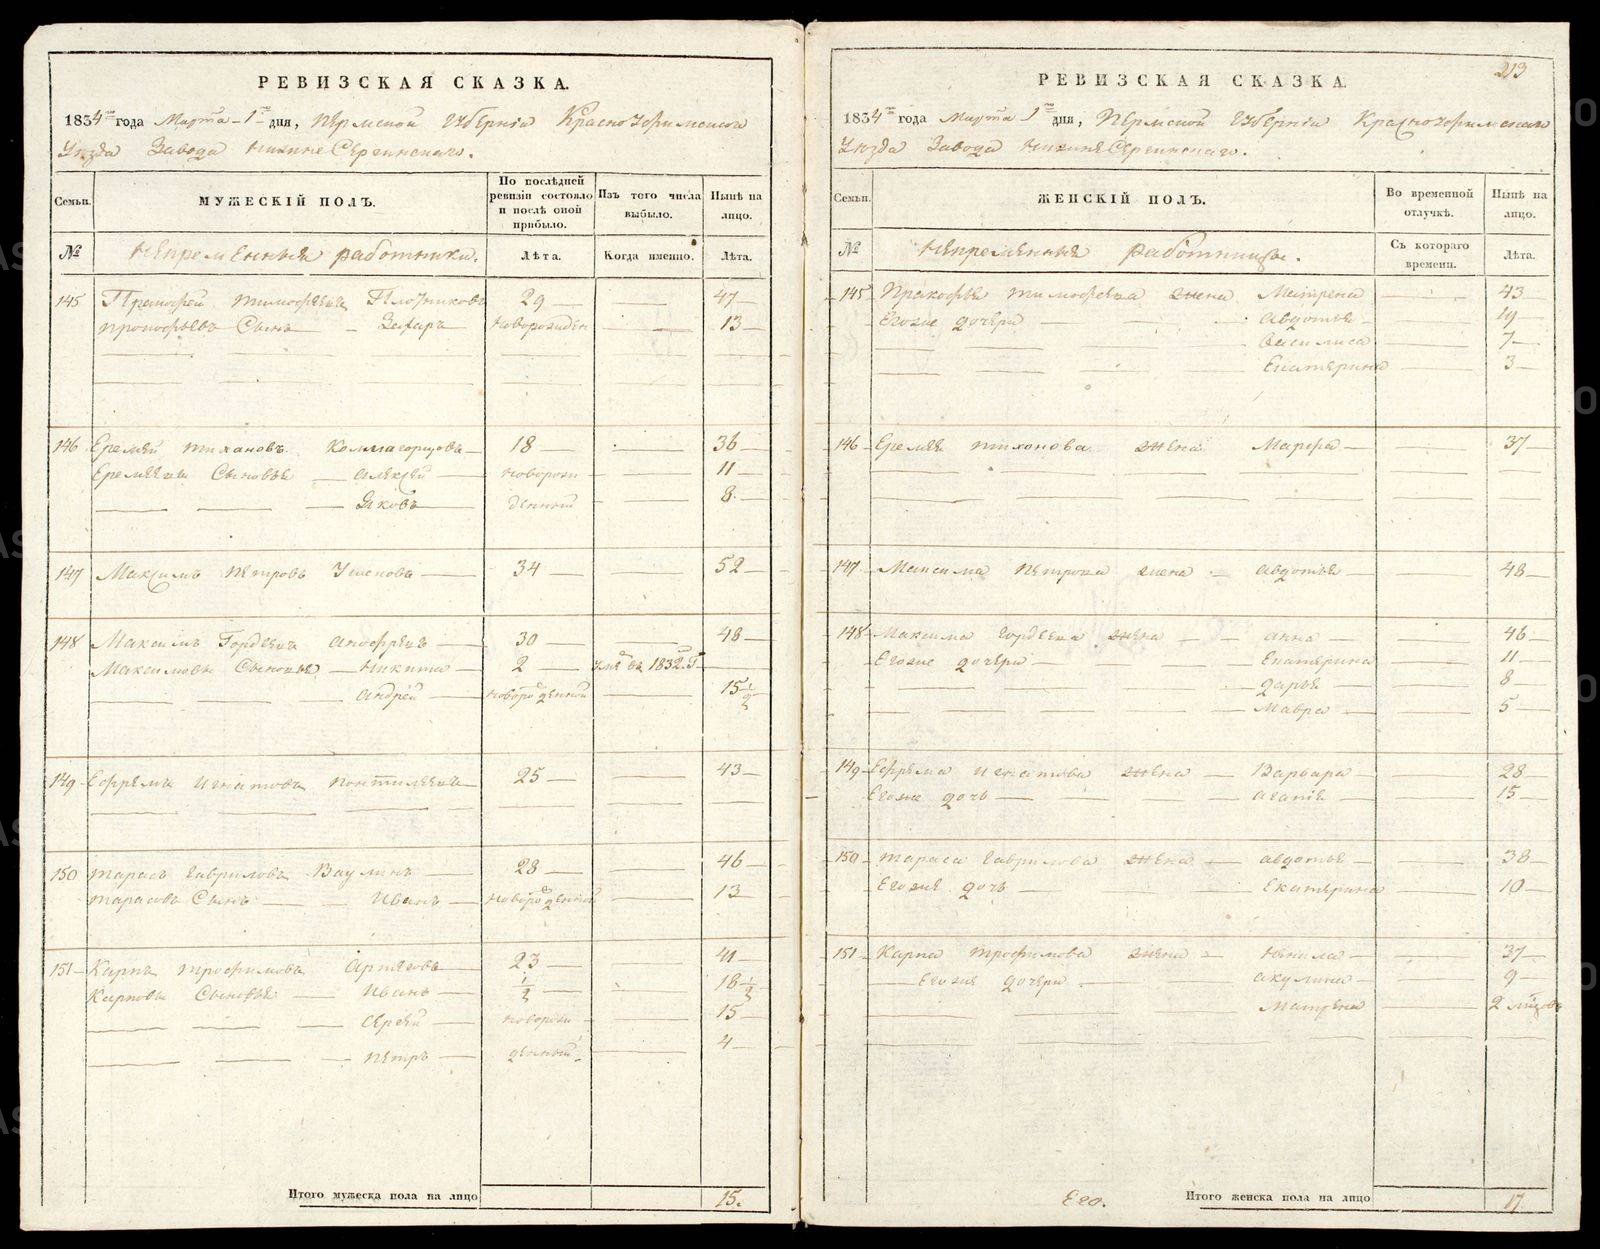 РЕВИЗСКАЯ СКАЗКА.
1834го года Марта 1го дня, Пермской Губернiи Красноуфимского
Уезда Завода Нижне Сергинскаго.
Семьи. МУЖЕСКIЙ ПОЛЪ. По послѣдней ревизiи состояло и послѣ оной прибыло. Изъ того числа выбыло. Нынѣ на лицо.
№ Непременныя работники. Лѣта. Когда именно. Лѣта.
145 Прокофей Тимофеевъ Плотниковъ 29 47
Прокофьевъ Сынъ Захаръ новорожден 13
146 Еремей Тихановъ 18 36
Еремеевы Сыновья Алексей новорож 11
Яковъ денный 8
147 Максимъ Петровъ 34 52
148 Максимъ Гордеевъ Ануфреевъ 30 48
Максимовы Сыновья Никита 2 въ 1832 Г
Андрей новорожденный 15 1/2
149 Ефремъ Игнатовъ Пантилеевъ 25 43
150 Тарасъ Гавриловъ Ваулинъ 28 46
Тарасовъ Сынъ Иванъ новорожденной 13
151 Карпъ Трофимовъ 23 41
Карповы Сыновья Иванъ 1/2 18 1/2
Сергей новорож 15
Петръ денный 4
Итого мужеска пола на лицо 15.
213
РЕВИЗСКАЯ СКАЗКА.
1834го года Марта 1го дня, Пермской Губернiи Красноуфимскаго
Уезда Завода Нижне Сергинскаго.
Семьи. ЖЕНСКIЙ ПОЛЪ. Во временной отлучкѣ. Нынѣ на лицо.
№ Непременныя работницы. Съ котораго времени. Лѣта.
145 Прокофья Тимофеева жена Матрена 43
Егоже дочери Авдотья 19
Василиса 7
Екатерина 3
146 Еремея Тихонова жена Марфа 37
147 Максима Петрова жена Авдотья 48
148 Максима Гордеева жена Анна 46
Егоже дочери Екатерина 11
Дарья 8
Мавра 5
149 Ефрема Игнатова жена Варвара 28
Егоже дочь Агапiя 15
150 Тараса Гаврилова жена Авдотья 38
Егоже дочь Екатерина 10
151 Карпа Трофимова жена 37
Егоже дочери Акулина 9
Матрена 2
Его. Итого женска пола на лицо 17